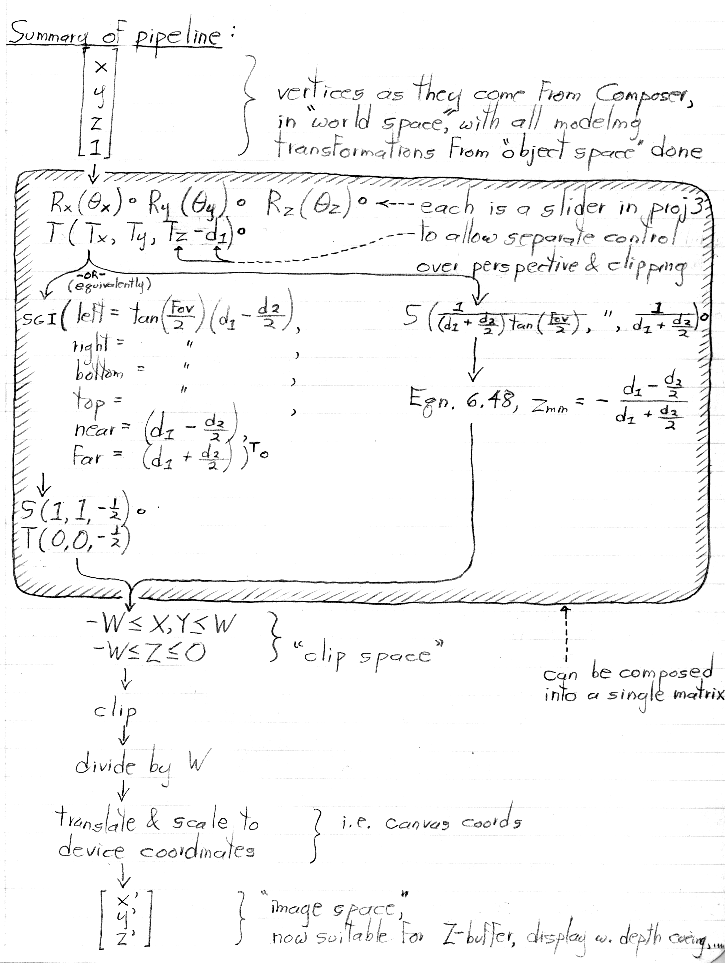 Summary of pipeline:
[x
y
z
1]
} vertices as they come from Composer,
in "world space," with all modeling
transformations from "object space" done
Rx(θx)∘ Ry(θy)∘ Rz(θz)∘ <--- each is a slider in proj3
T(Tx, Ty, Tz-d1)∘
to allow separate control
over perspective & clipping
-OR-
(equivalently)
SGI(left = tan(Fov/2)(d1 - d2/2),
right = " ,
bottom = " ,
top = " ,
near = (d1 - d2/2),
far = (d1 + d2/2))T∘
S(1, 1, -1/2)∘
T(0,0,-1/2)
S(1/((d1 + d2/2)tan(Fov/2)), ", 1/(d1 + d2/2))∘
Eqn. 6.48, Zmm = - (d1 - d2/2)/(d1 + d2/2)
-W ≤ X,Y ≤ W
-W ≤ Z ≤ 0
} "clip space"
can be composed
into a single matrix
clip
divide by W
translate & scale to
device coordinates
} i.e. canvas coords
[x'
y'
z']
} "image space,"
now suitable for Z-buffer, display w. depth cueing,...